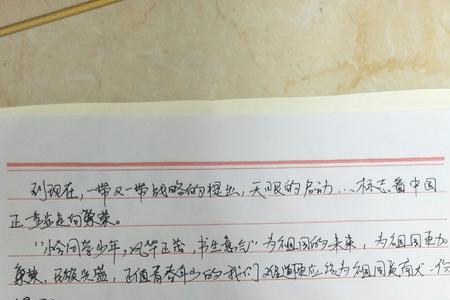 到现在,一带又一带战略的提出,天眼的启动…标志着中国
正一步步走向繁荣。
"恰同学少年,风华正茂,书生意气"为祖国的未来,为祖国更加
繁荣,民族兴盛,正值青春年少的我们难道不应该为祖国贡献一份